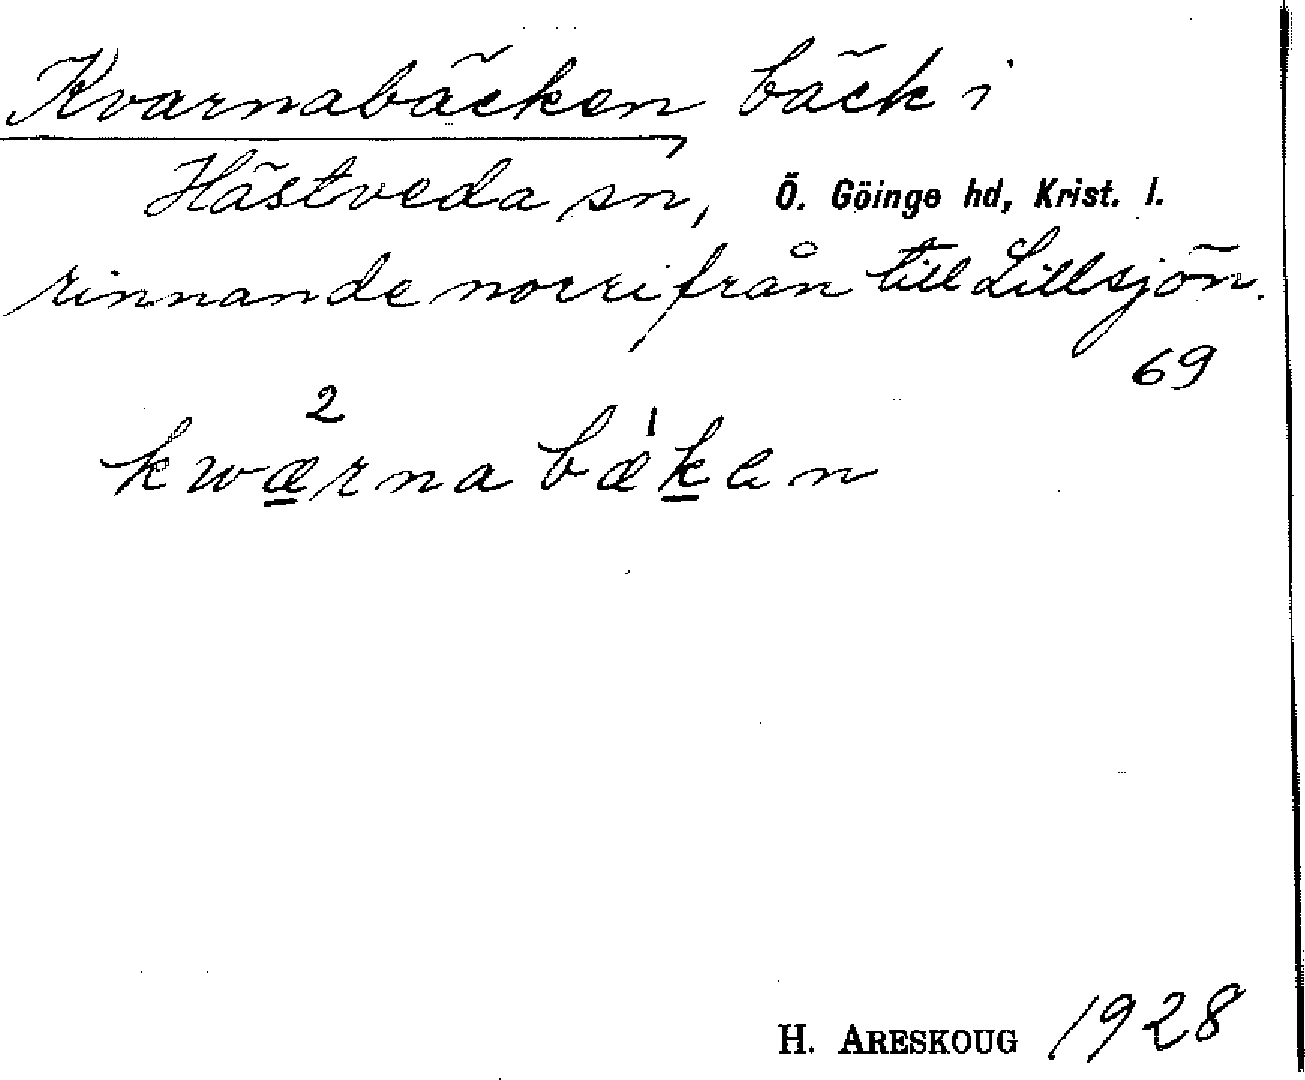 Kvarnabäcken, bäck i
Hästveda sn, Ö. Göinge hd, Krist. l.
rinnande norrifrån till Lillsjön.
69
2 1
kwærna bækan
H. ARESKOUG 1928